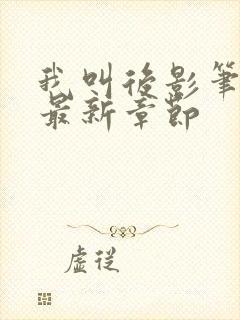 我叫後影筆
最新章節
虛從